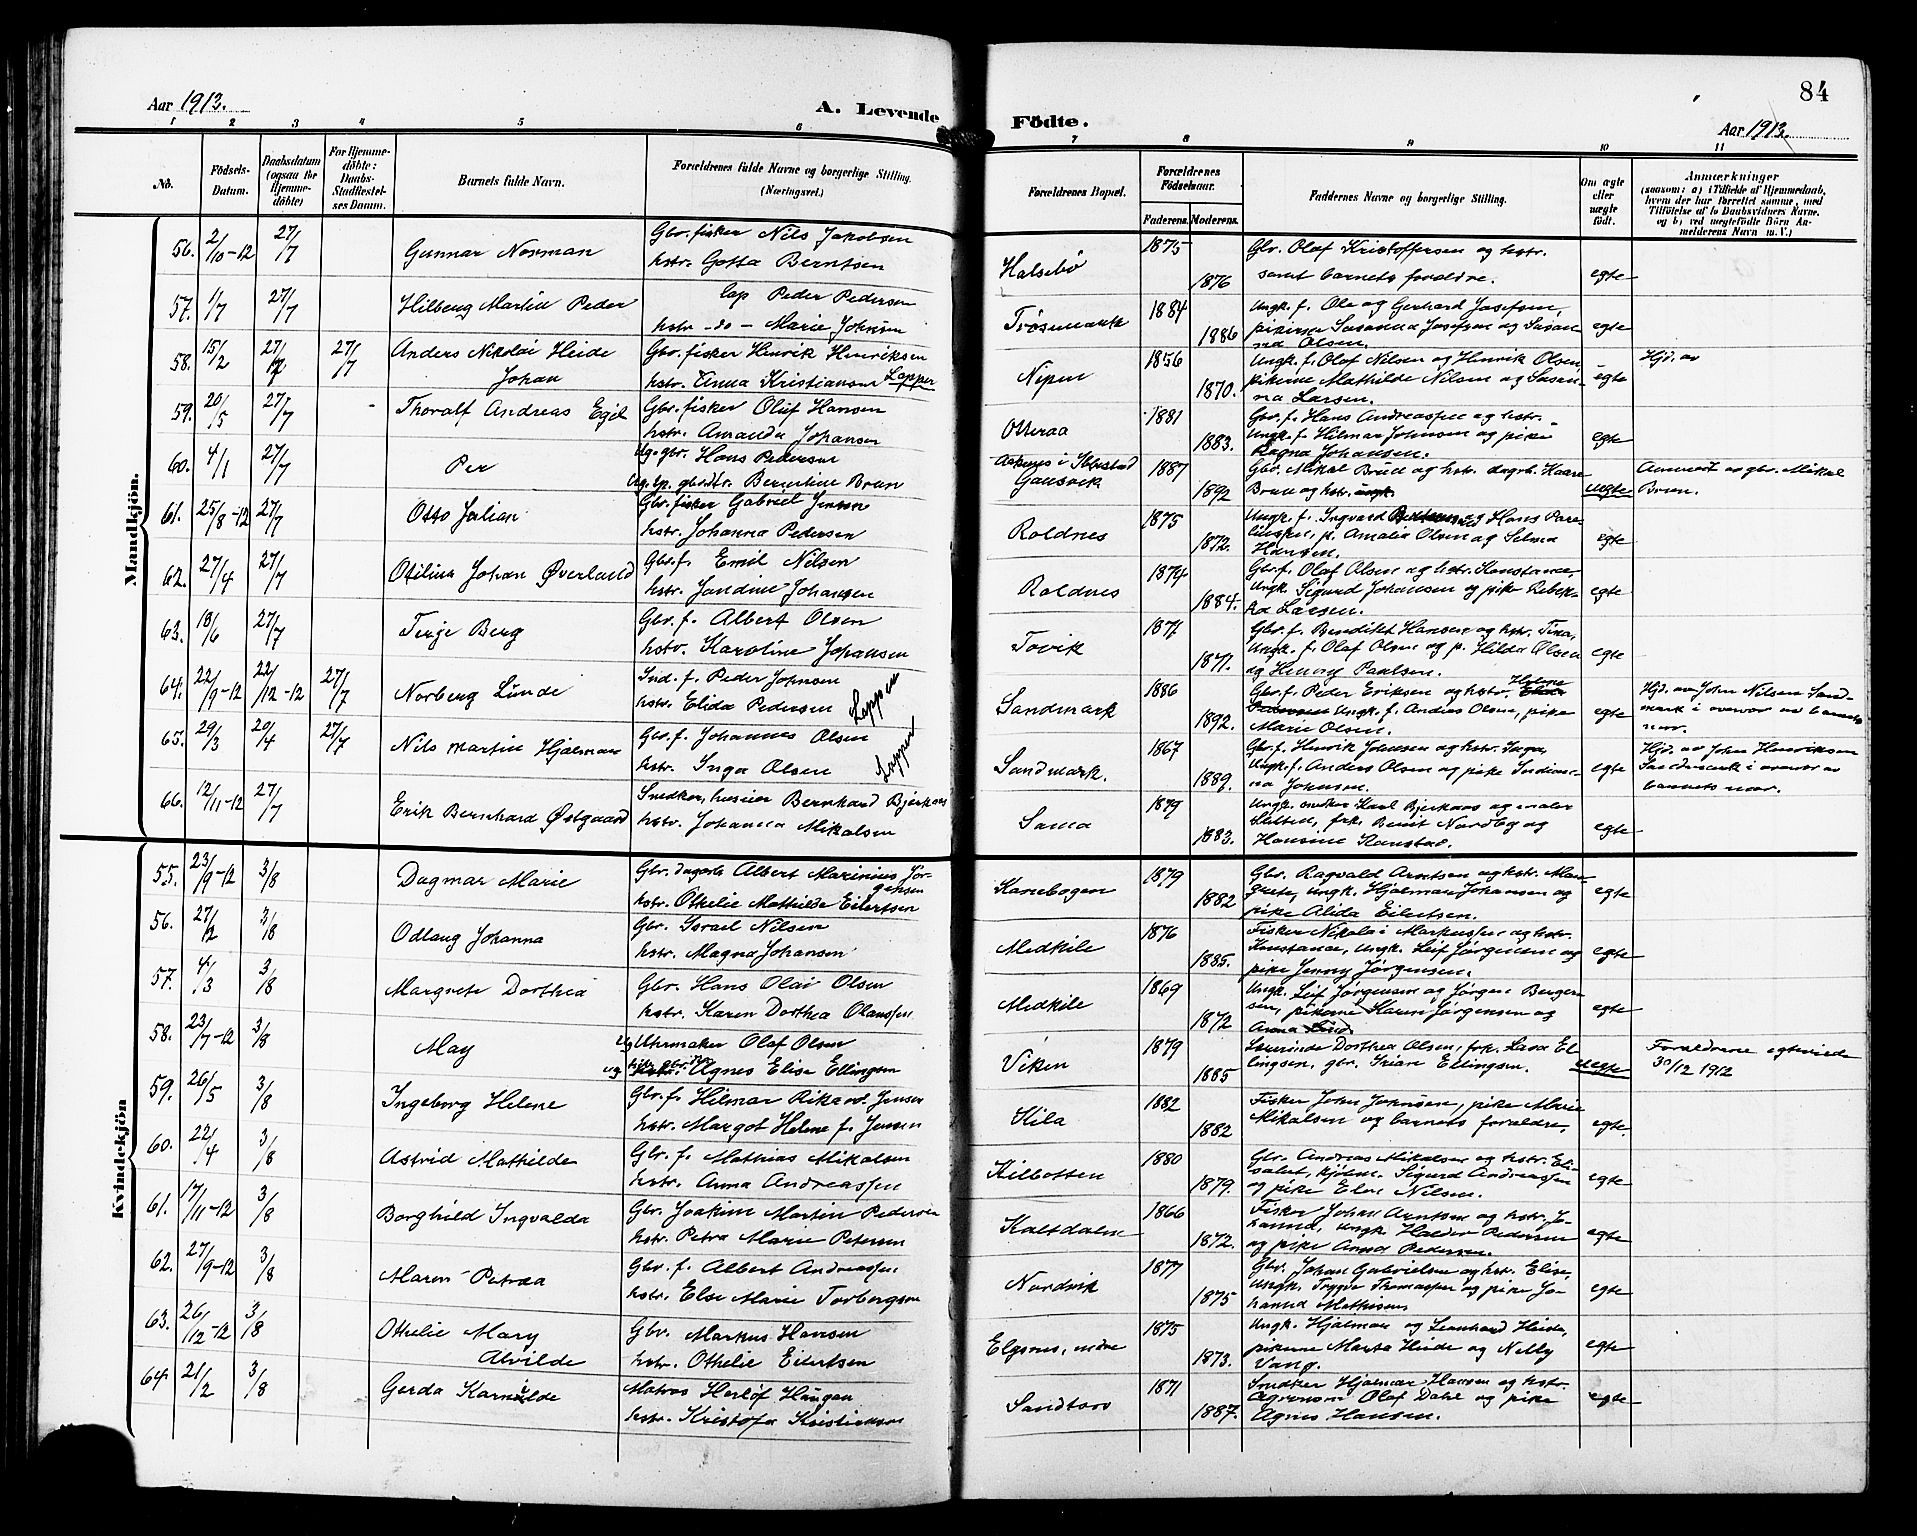 Aar 1913.
A. Levende
Födte.
84
Aar 1913.
1 2 3 4 5 6 7 8 9 10 11
No.
Födsels-Datum.
Daabsdatum (ogsaa for Hjemmedöbte)
For Hjemmedöbte: Daabs-Stadfæstelses Datum.
Barnets fulde Navn.
Forældrenes fulde Navne og borgerlige Stilling. (Næringsvei.)
Forældrenes Bopæl.
Forældrenes Födselsaar.
Faderens. Moderens.
Faddernes Navne og borgerlige Stilling.
Om ægte eller uægte födt.
Anmærkninger
(saasom: a) i Tilfælde af Hjemmedaab, hvem der har forrettet samme, med Tilföielse af to Daabsvidners Navne. og b) ved uegtefödte Börn Anmelderens Navn m. V.)
Mandkjön.
56. 2/10-12 27/7 Gunnar Norman Gbr. fisker Nils Jakobsen Halsebø 1875 Gbr. Olaf Kristoffersen og hstr.
hstr. Gotta Berntsen 1876 samt barnets forældre. egte
57. 1/7 27/7 Hilbeng Martin Peder Lap Peder Pedersen Trøsemark 1884 Ungk. f. Ole og Gerhard Josefsen,
hstr -do- Marie Johnsen 1886 pikerne Susanna Josefsen og Susanna Olsen. egte
58. 15/2 27/7 27/7 Anders Nikolai Heide Gbr. fisker Henrik Henriksen Nipen 1856 Ungk. f. Olaf Nilsen og Henrik Olsen, Hjd. av
Johan hstr. Anna Kristiansen Lapper 1870. pikerne Mathilde Nilsen og Susanna Larsen. egte
59. 20/5 27/7 Thoralf Andreas Egil Gbr. fisker Oluf Hansen Otteraa 1881 Gbr. f. Hans Andreassen og hstr.
hstr. Amanda Johansen 1883. Ungk. f. Hilmar Johnsen og pike Ragna Johansen. egte
60. 4/1 27/7 Per Ug. gbr. Hans Pedersen i Ibbestad Gausvik 1887 Gbr. Mikal Brun og hstr. dagarb. Anmeldt av gbr. Mikal
Berntine Brun 1892 Brun og hstr. uegte Brun.
61. 25/8-12 27/7 Otto Julian Gbr. fisker Gabriel Jensen Roldnes 1875 Ungk. f. Ingvard og Hans
hstr. Johanna Pedersen 1872. p. Amalia Olsen og Selma Hansen. egte
62. 27/4 27/7 Otilius Johan Øverland Gbr. f. Emil Nilsen Roldnes 1874 Gbr. f. Olaf Olsen og hstr. Konstance,
hstr. Jandine Johansen 1884. Ungk. Sigurd Johansen og pike Rebekka Larsen. egte
63. 18/6 27/7 Terje Berg Gbr. f. Albert Olsen Tovik 1877 Gbr. f. Benedikt Hansen og hstr. Tina,
hstr. Karoline Johansen 1871. Ungk. f. Olaf Olsen og p. Hilda Olsen og Henny Paulsen. egte
64. 22/9-12 22/12-12 27/7 Norberg Lunde Ind. f. Peder Johnsen Sandmark 1886 Gbr. f. Peder Eriksen og hstr. Helene Hjd. av John Nilsen Sandmark
hstr. Elida Pedersen Lapper 1892. Ungk. f. Anders Olsen, pike Marie Olsen. egte i overvær av barnets mor.
65. 29/3 20/4 27/7 Nils Martin Hjalmar Gbr. f. Johannes Olsen Sandmark. 1867 Gbr. f. Henrik Johnsen og hstr. Inga, Hjd. av John Henriksen
hstr. Inga Olsen Lapper 1889. Ungk. f. Anders Olsen og pike Johnsen. egte Sandmark i overvær av barnets mor.
66. 12/11-12 27/7 Erik Bernhard Østgaard Snedker, huseier Bernhard Bjerkaas Sama 1879 Ungk. snedker Karl Bjerkaas og maler
hstr. Johanna Mikalsen 1883. frk. Berit Nordby og Hansine Ranstad. egte
Kvindekjön
55. 23/9-12 3/8 Dagmar Marie Gbr. dagarb. Albert Marinius Jörgensen Kanebogen 1879 Gbr. Ragvald Arntsen og hstr. Margrete,
hstr. Othelie Mathilde Eilertsen 1882 ungk. Hjalmar Johansen og pike Alida Eilertsen. egte
56. 27/2 3/8 Odlaug Johanna Gbr. Israel Nilsen Medkile 1876 Fisker Nikolai Markussen og hstr.
hstr. Magna Johansen 1885. Konstance, ungk. Leif Jørgensen og pike Jenny Jørgensen. egte
57. 4/3 3/8 Margrete Dorthea Gbr. Hans Olai Olsen Medkile 1869 Ungk. Leif Jørgensen og Jørgen Bergersen,
hstr. Karen Dorthea Olaussen 1872 pikerne Karen Jørgensen og Anna Lind. egte
58. 23/7-12 3/8 May ug Uhrmaker Olaf Olsen Viken 1879 Dorthea Olsen, frk. Lava Ellingsen, Forældrene egteviede
ug Agnes Elise Ellingsen 1885 gbr. Ellingsen. uegte 30/12 1912
59. 26/5 3/8 Ingeborg Helene Gbr. f. Hilmar Rikard Jensen Kila 1882 Fisker John Johnsen, pike Marie
hstr. Margot Helene f. Jensen 1882 Mikalsen og barnets forældre. egte.
60. 22/4 3/8 Astrid Mathilde Gbr. f. Mathias Mikalsen Kilbotten 1880 Gbr. Andreas Mikalsen og hstr. Elisabet,
hstr. Anna Andreassen 1879. Sigurd Andreassen og pike Elen Nilsen. egte
61. 17/11-12 3/8 Borghild Ingvalda Gbr. Joakim Martin Pedersen Kaltdalen 1866 Fisker Johan Arntsen og hstr. Johanna,
hstr. Petra Marie Petersen 1872. ungk. Haldor Pedersen og pike Anna Pedersen. egte
62. 27/9-12 3/8 Maren Petrea Gbr. f. Albert Andreassen Nordvik 1877 Gbr. Johan Gabrielsen og hstr. Elise,
hstr. Else Marie Torbergsen 1875 Ungk. Trygve Thomassen og pike Johanna Mathisen egte
63. 26/12-12 3/8 Othelie Mary Gbr. Markus Hansen Elgsnes, indre 1875 Ungk. Hjalmar og Leonhard Heide,
Alvilde hstr. Othelie Eilertsen 1873. pikerne Marta Heide og Nelly Vang. egte
64. 21/2 3/8 Gerda Karnilde Matros Herlöf Haugan Sandtorv 1871 Snedker Hjalmar Hansen og hstr.
hstr. Kristofa Kristiansen 1887. Agronom Olaf Dahl og pike Agnes Hansen. egte